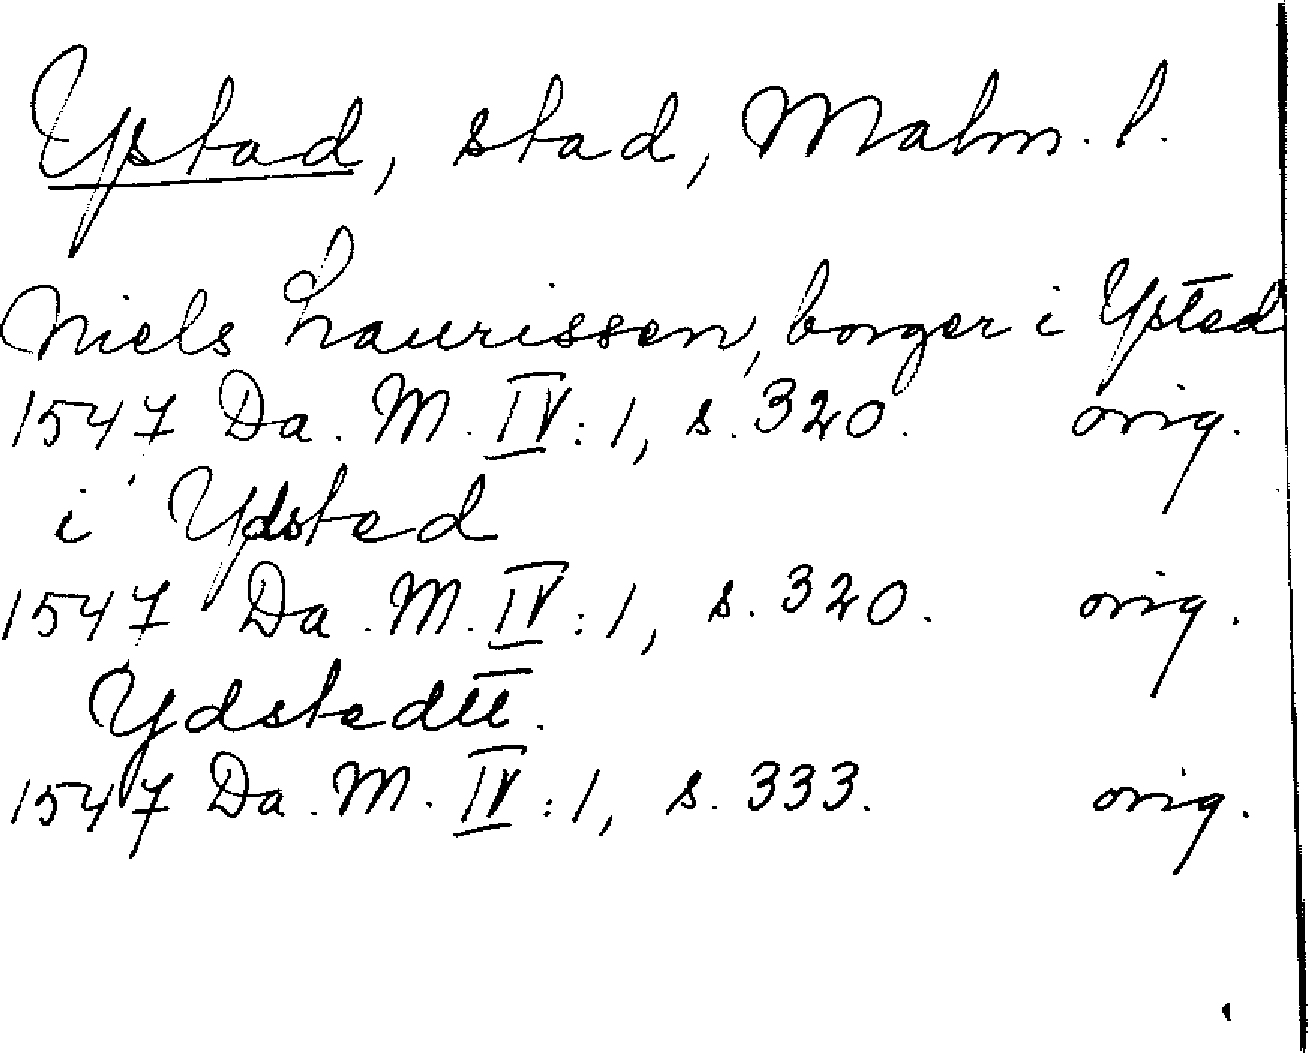 Ystad, stad, Malm. l.
Niels Laurissen, borger i Ysted
1547 Da. M. IV: 1, s. 320. orig.
i Ydsted
1547 Da. M. IV: 1, s. 320. orig.
Ydstedtt.
1547 Da. M. IV: 1, s. 333. orig.